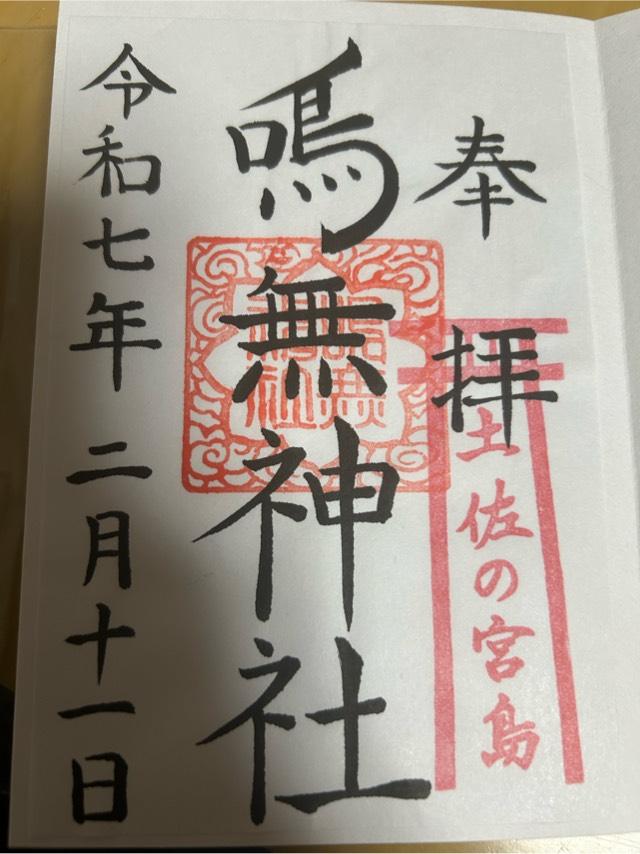 奉拝
土佐の宮島
鳴無神社
令和七年 二月十一日